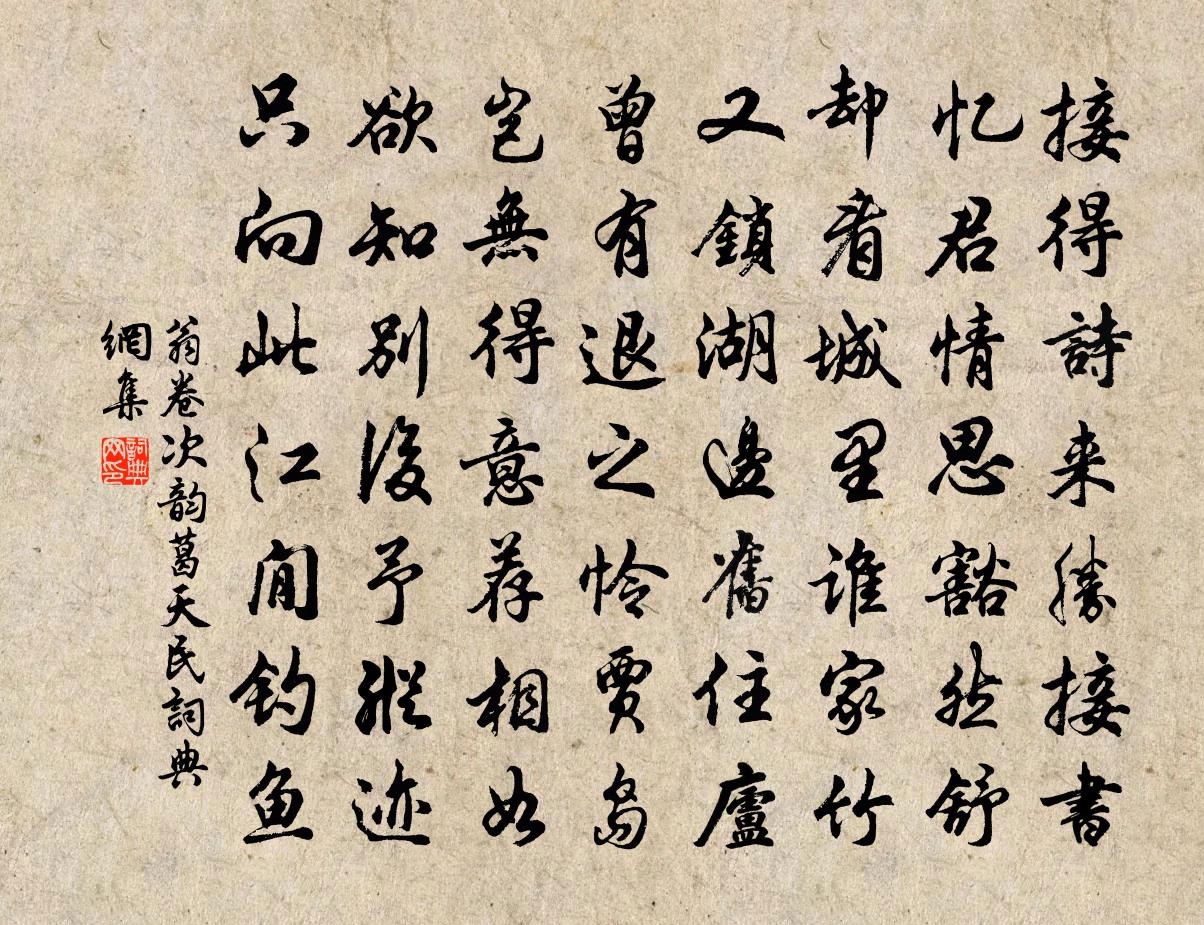 接得詩来勝接書
忆君情思豁然舒
却看城里谁家竹
又鎖湖邊舊住廬
曾有退之怜賈島
岂無得意荐相如
欲知别後予蹤迹
只向此江閒钓鱼
翁卷次韵葛天民詞典
網集
詞典
网印